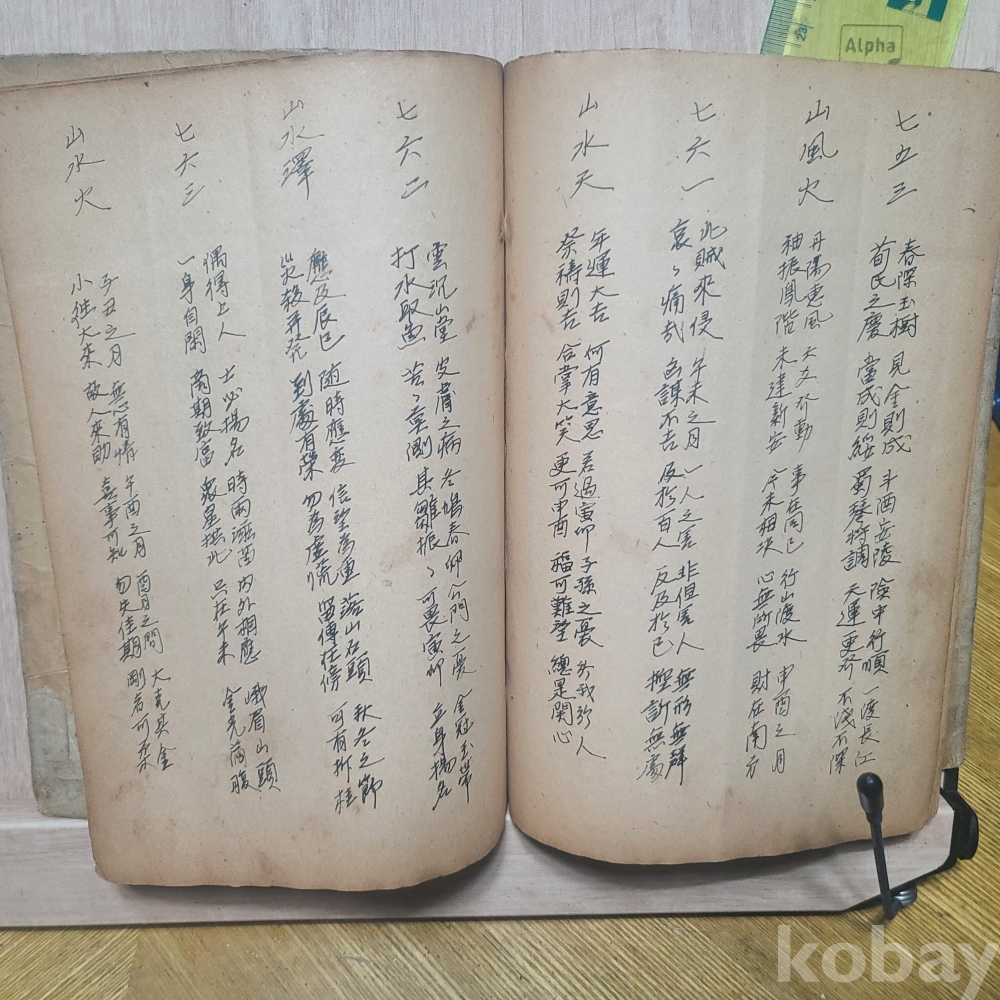 七五三
山風火
春深玉樹 見金則成 斗酉安陵 險中行順 一渡長江
荀氏之慶 當成則綏 蜀琴將調 天運更 不淺不深
丹陽惠風 大 動 事在 己 行山渡水 申酉之月
袖振鳳階 未達新安 相 心無所畏 財在南方
七六一
山水天
北賊來侵 午未之月 一人之害 非但害人 無形無聲
哀々痛哉 凶謀不吉 反於百人 反及於己 控訴無處
年運大吉 何有意思 若過寅卯 子孫之憂 於我於人
祭禱則吉 合掌大笑 更可申酉 福可難望 總是関心
七六二
山水澤
雲沉山堂 皮膚之病 冬 春卯 門之憂 金冠玉帶
打水取魚 苦々 其雛振々 可畏寅卯 立身揚名
應及辰巳 隨時應変 信望為重 落山石頭 秋冬之節
災殺并發 到處有榮 勿為虛荒 留傳在傍 可有折桂
七六三
山水火
偶得上人 士必揚名 時雨 苗 內外相應 峨眉山頭
一身自閑 商期致富 衆星拱北 只在午未 金光滿腹
子丑之月 無心有情 午酉之月 酉月之間 大 其金
小徃大來 故人來助 喜事可知 勿失佳期 剛 可柔
Alpha
23
kobay